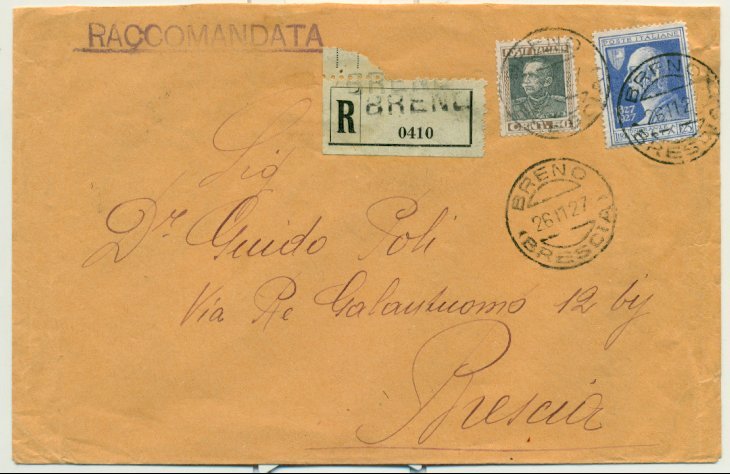 RACCOMANDATA
BRENO
BRENO
R
0410
POSTE ITALIANE
BRENO
BRENO
26.11.27
(BRESCIA)
Sig
Dr. Guido Poli
Via Re Galantuomo 12 bis
Brescia